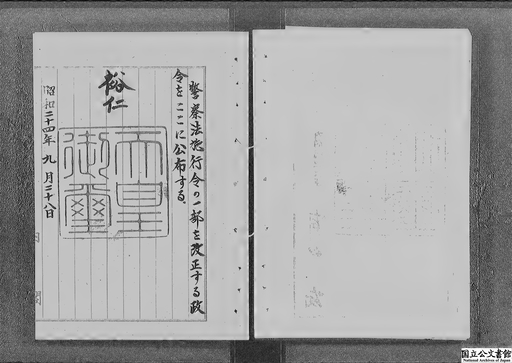 警察法施行令の一部を改正する政
令をここに公布する。
裕仁
天皇
御璽
昭和二十四年 九 月二十八日
内
閣
国立公文書館
National Archives of Japan